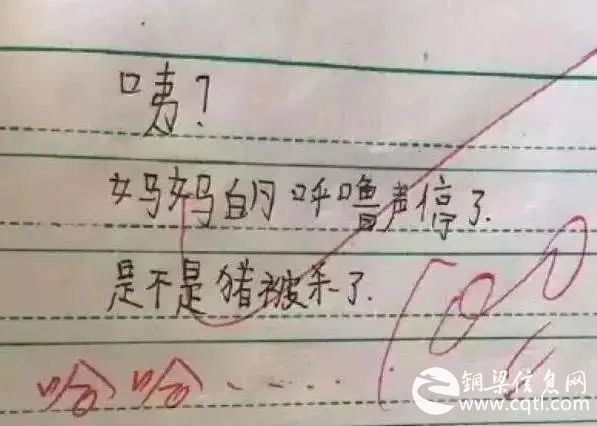 咦？
妈妈的呼噜声停了.
是不是猪被杀了.
哈哈.....
100
铜梁信息网
www.cqtl.com